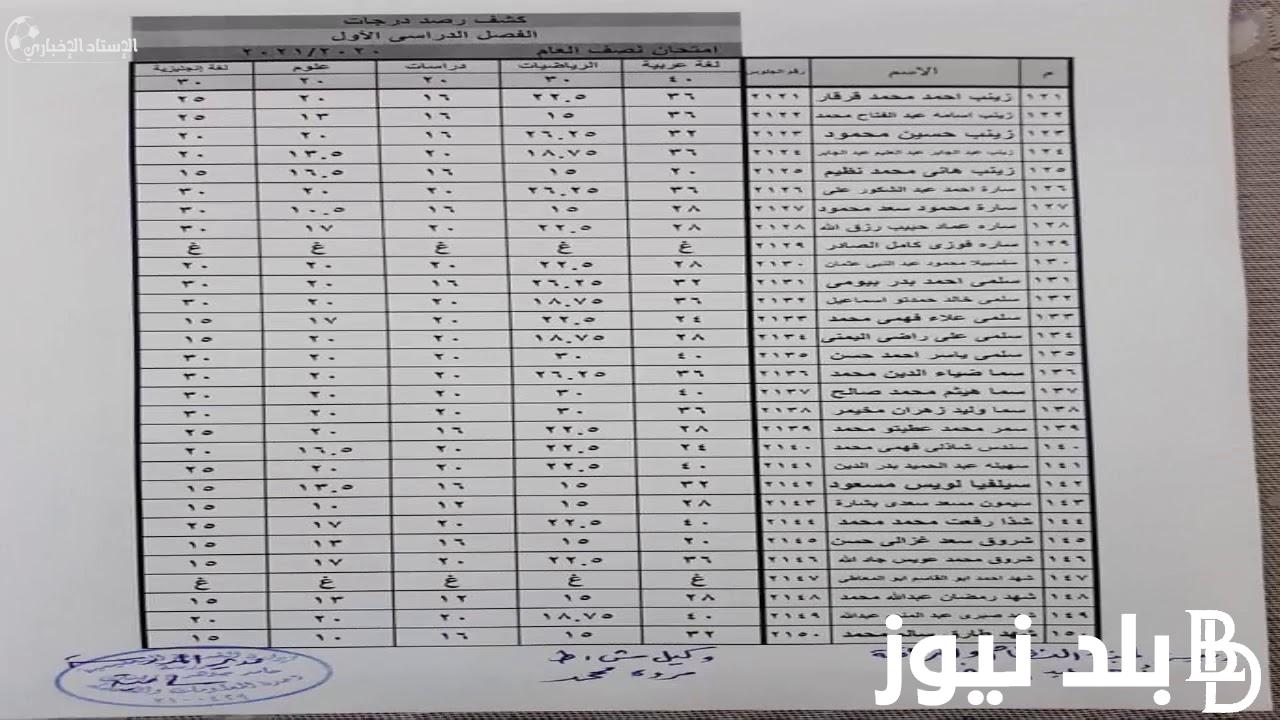 الإستاد الإخباري
كشف رصد درجات
الفصل الدراسى الأول
امتحان نصف العام ٢٠٢١/٢٠٢٠
م الاسم رقم الجلوس لغة عربية الرياضيات دراسات علوم لغة إنجليزية
٤٠ ٣٠ ٢٠ ٢٠ ٣٠
١٢١ زينب احمد محمد قرقار ٢١٢١ ٣٦ ٢٢.٥ ١٦ ٢٠ ٢٥
١٢٢ زينب اسامه عبد الفتاح محمد ٢١٢٢ ٣٦ ١٥ ١٦ ١٣ ٢٥
١٢٣ زينب حسين محمود ٢١٢٣ ٣٢ ٢٦.٢٥ ١٦ ٢٠ ٢٠
١٢٤ زينب عبد الجابر عبد العليم عبد الجابر ٢١٢٤ ٣٦ ١٨.٧٥ ٢٠ ١٣.٥ ٢٠
١٢٥ زينب هانى محمد نظيم ٢١٢٥ ٢٠ ١٥ ١٦ ١٦.٥ ١٥
١٢٦ سارة احمد عبد الشكور على ٢١٢٦ ٣٦ ٢٦.٢٥ ٢٠ ٢٠ ٣٠
١٢٧ سارة محمود سعد محمود ٢١٢٧ ٢٨ ١٥ ١٦ ١٠.٥ ٣٠
١٢٨ ساره عماد حبيب رزق الله ٢١٢٨ ٢٨ ٢٢.٥ ٢٠ ١٧ ٣٠
١٢٩ ساره فوزى كامل الصادر ٢١٢٩ غ غ غ غ غ
١٣٠ سلسبيلا محمود عبد النبى عثمان ٢١٣٠ ٢٨ ٢٢.٥ ٢٠ ٢٠ ٢٠
١٣١ سلمى احمد بدر بيومى ٢١٣١ ٣٢ ٢٦.٢٥ ١٦ ٢٠ ٣٠
١٣٢ سلمى خالد حمدتو اسماعيل ٢١٣٢ ٣٦ ١٨.٧٥ ٢٠ ٢٠ ٣٠
١٣٣ سلمى علاء فهمى محمد ٢١٣٣ ٢٤ ٢٢.٥ ٢٠ ١٧ ١٥
١٣٤ سلمى على راضى اليمنى ٢١٣٤ ٢٨ ١٨.٧٥ ٢٠ ٢٠ ١٥
١٣٥ سلمى ياسر احمد حسن ٢١٣٥ ٤٠ ٣٠ ٢٠ ٢٠ ٣٠
١٣٦ سما ضياء الدين محمد ٢١٣٦ ٣٦ ٢٦.٢٥ ٢٠ ٢٠ ٣٠
١٣٧ سما هيثم محمد صالح ٢١٣٧ ٤٠ ٣٠ ٢٠ ٢٠ ٣٠
١٣٨ سما وليد زهران مخيمر ٢١٣٨ ٣٦ ٣٠ ٢٠ ٢٠ ٣٠
١٣٩ سمر محمد عطيتو محمد ٢١٣٩ ٢٨ ٢٢.٥ ١٦ ٢٠ ٢٥
١٤٠ سندس شاذلى فهمى محمد ٢١٤٠ ٢٤ ٢٢.٥ ٢٠ ١٦.٥ ٢٠
١٤١ سهيله عبد الحميد بدر الدين ٢١٤١ ٤٠ ٢٢.٥ ٢٠ ٢٠ ٢٥
١٤٢ سيلفيا لويس مسعود ٢١٤٢ ٣٢ ١٥ ١٦ ١٣.٥ ١٥
١٤٣ سيمون مسعد سعدى بشارة ٢١٤٣ ٢٨ ١٥ ١٢ ١٠ ١٥
١٤٤ شذا رفعت محمد محمد ٢١٤٤ ٤٠ ٢٢.٥ ٢٠ ١٧ ٢٥
١٤٥ شروق سعد غزالى حسن ٢١٤٥ ٢٠ ١٥ ١٦ ١٣ ١٥
١٤٦ شروق محمد عويس جاد الله ٢١٤٦ ٣٦ ٢٢.٥ ٢٠ ١٧ ١٥
١٤٧ شهد احمد ابو القاسم ابو المعاطى ٢١٤٧ غ غ غ غ غ
١٤٨ شهد رمضان عبدالله محمد ٢١٤٨ ٢٨ ١٥ ١٢ ١٣ ١٥
١٤٩ شهد صبرى عبد المنعم عبدالله ٢١٤٩ ٤٠ ١٨.٧٥ ٢٠ ٢٠ ٢٠
شهد طارق محمد ٢١٥٠ ٣٢ ١٥ ١٦ ١٠ ١٥
وكيل ش . ط
مروة محمد
بلد نيوز